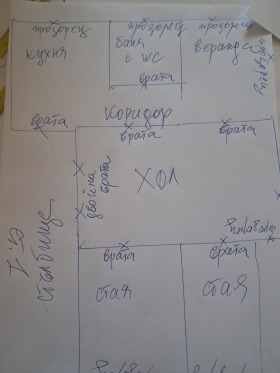 прозорец
прозорец
прозорец
кухня
баня
с wc
веранда
прозорец
врата
врата
Коридор
врата
врата
двойна
врата
ХОЛ
стълбище
врата
врата
стая
стая